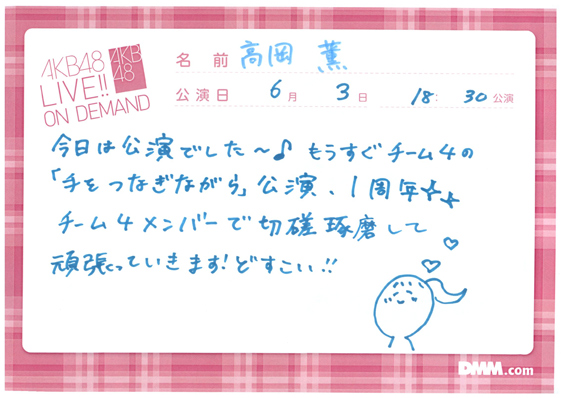 AKB48
LIVE!!
ON DEMAND
AKB
48
名前 高岡 薫
公演日 6月 3日 18:30公演
今日は公演でした〜♪ もうすぐチーム4の
「手をつなぎながら」公演、1周年☆☆
チーム4メンバーで切磋琢磨して
頑張っていきます!どすこい!!
DMM.com